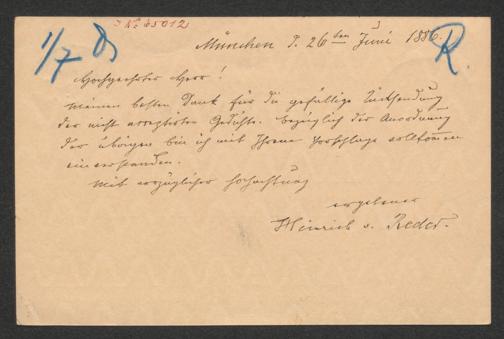 J. No 65012
1/7
R
München d. 26ten Juni 1886.
Hochgeehrter Herr!
Meinen besten Dank für die gefällige Rücksendung
der nicht acceptirten Gedichte. Bezüglich der Anordnung
der übrigen bin ich mit Ihrem Vorschlage vollkommen
einverstanden.
Mit vorzüglicher Hochachtung
ergebener
Heinrich v. Reder.